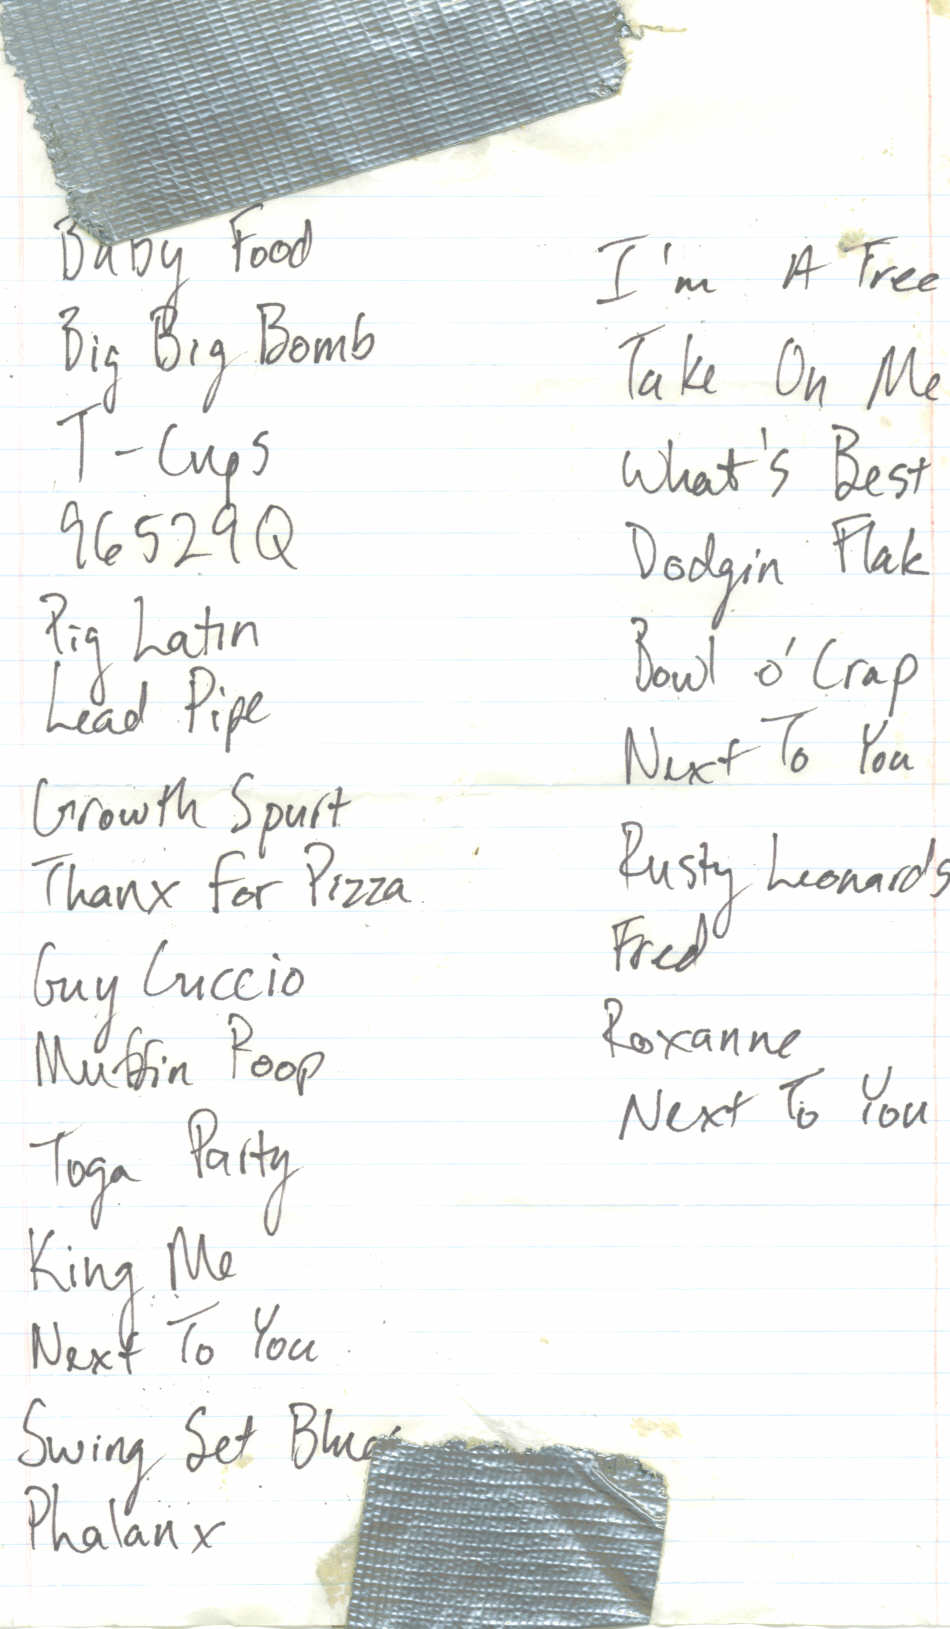 Baby Food
Big Big Bomb
T-Cups
96529Q
Pig Latin
Lead Pipe
Growth Spurt
Thanx For Pizza
Guy Cuccio
Muffin Poop
Toga Party
King Me
Next To You
Swing Set Blues
Phalanx
I'm A Free
Take On Me
What's Best
Dodgin Flak
Bowl o' Crap
Next To You
Rusty Leonards
Fred
Roxanne
Next To You